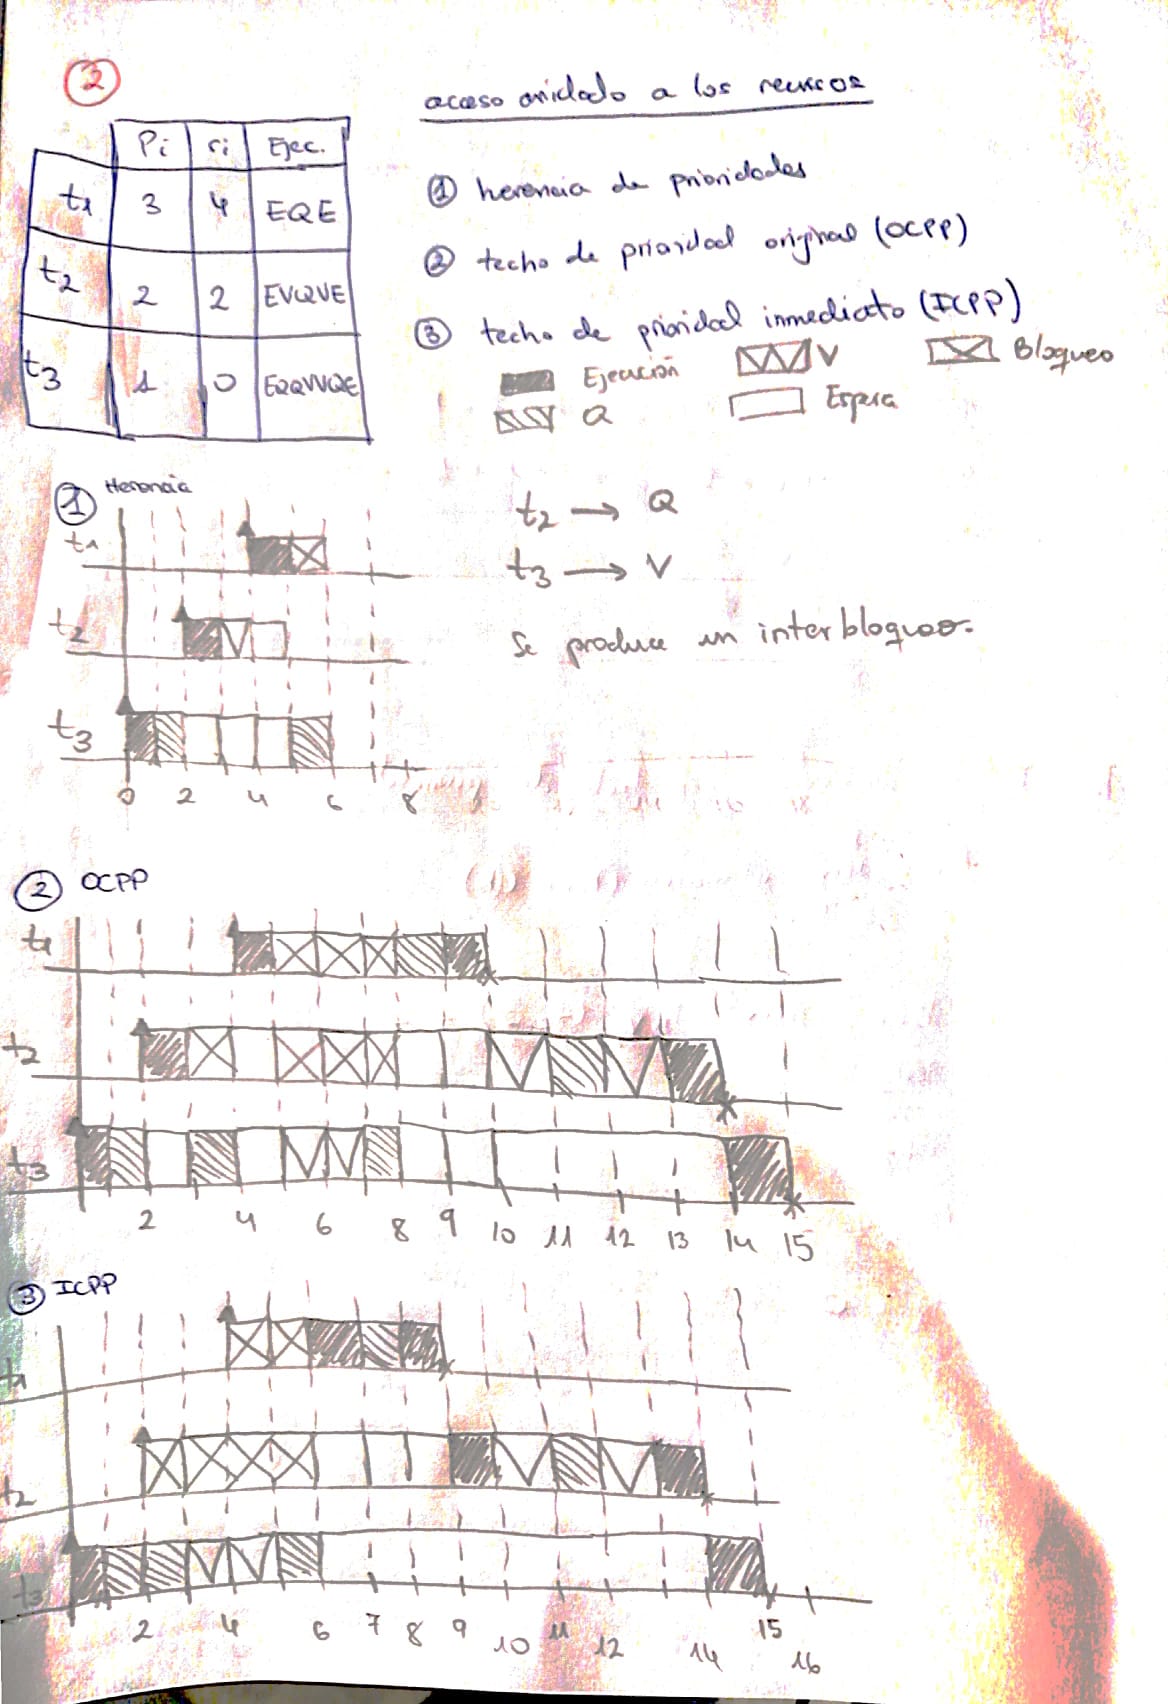 2
acceso anidado a los recursos
Pi ri Ejec.
t1 3 4 EQE
t2 2 2 EVQVE
t3 1 0 EQQVVQE
① herencia de prioridades
② techo de prioridad original (OCPP)
③ techo de prioridad inmediato (ICPP)
Ejecución V Bloqueo
Q Espera
① Herencia
t1
t2
t3
0 2 4 6 8
t2 → Q
t3 → V
Se produce un interbloqueo.
② OCPP
t1
t2
t3
2 4 6 8 9 10 11 12 13 14 15
③ ICPP
t1
t2
t3
2 4 6 7 8 9 10 11 12 14 15 16